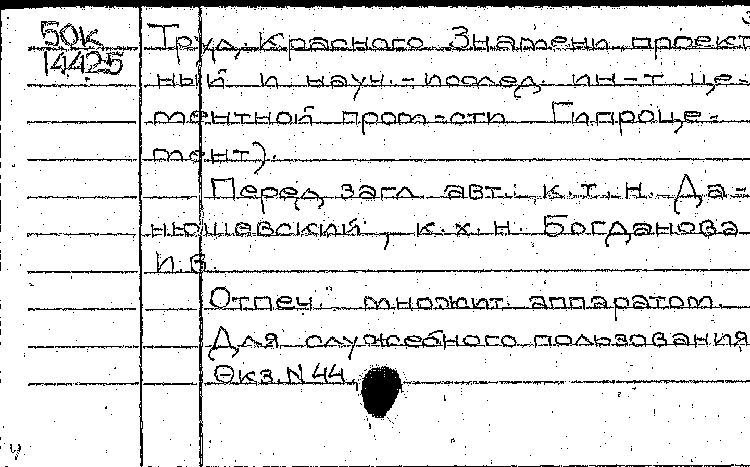 50к
14425
Труд. Красного Знамени проект
ный и науч.-исслед. ин-т це-
ментной пром-сти Гипроце-
мент).
Перед загл. авт.: к.т.н. Да-
нюшевский, к.х.н. Богданова
И.В.
Отпеч. множит. аппаратом.
Для служебного пользования
Экз. N 44.